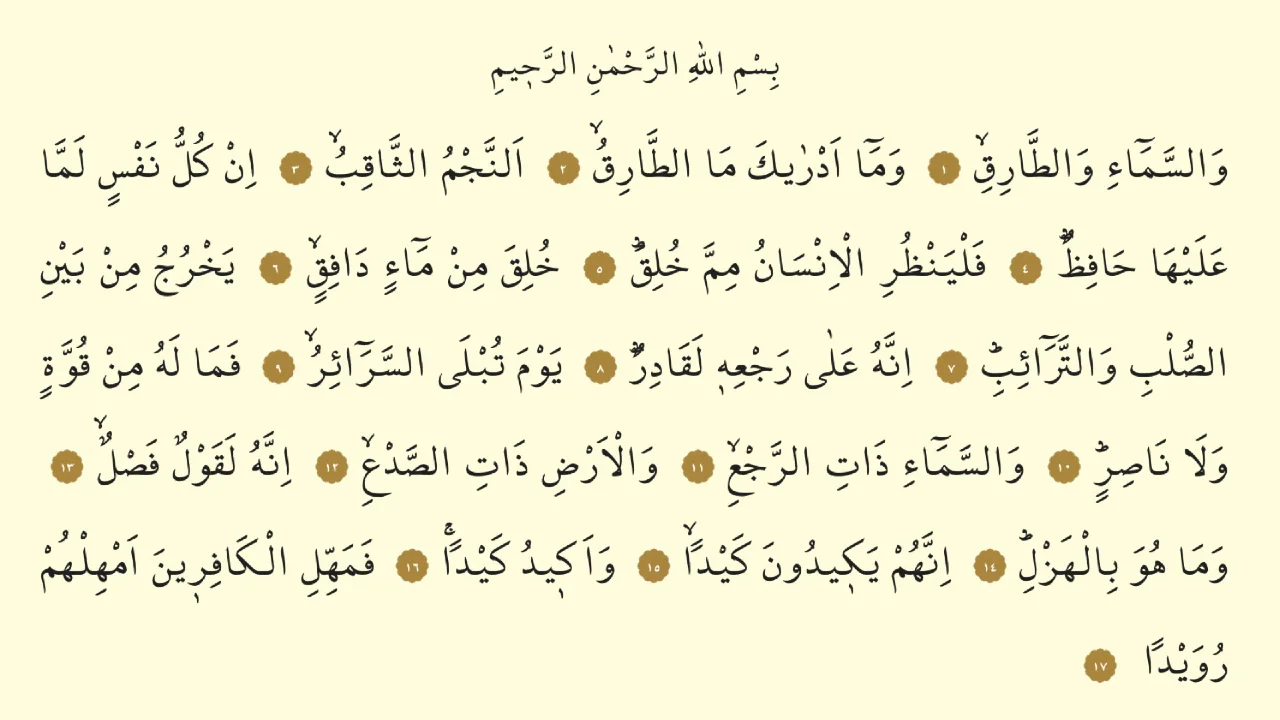 بِسْمِ اللهِ الرَّحْمٰنِ الرَّح۪يمِ
وَالسَّمَٓاءِ وَالطَّارِقِۙ ١ وَمَٓا اَدْرٰيكَ مَا الطَّارِقُۙ ٢ اَلنَّجْمُ الثَّاقِبُۙ ٣ اِنْ كُلُّ نَفْسٍ لَمَّا
عَلَيْهَا حَافِظٌۜ ٤ فَلْيَنْظُرِ الْاِنْسَانُ مِمَّ خُلِقَۜ ٥ خُلِقَ مِنْ مَٓاءٍ دَافِقٍۙ ٦ يَخْرُجُ مِنْ بَيْنِ
الصُّلْبِ وَالتَّرَٓائِبِۜ ٧ اِنَّهُ عَلٰى رَجْعِه۪ لَقَادِرٌۜ ٨ يَوْمَ تُبْلَى السَّرَٓائِرُۙ ٩ فَمَا لَهُ مِنْ قُوَّةٍ
وَلَا نَاصِرٍۜ ١٠ وَالسَّمَٓاءِ ذَاتِ الرَّجْعِۙ ١١ وَالْاَرْضِ ذَاتِ الصَّدْعِۙ ١٢ اِنَّهُ لَقَوْلٌ فَصْلٌۙ ١٣
وَمَا هُوَ بِالْهَزْلِۜ ١٤ اِنَّهُمْ يَك۪يدُونَ كَيْدًاۙ ١٥ وَاَك۪يدُ كَيْدًاۚ ١٦ فَمَهِّلِ الْكَافِر۪ينَ اَمْهِلْهُمْ
رُوَيْدًا ١٧